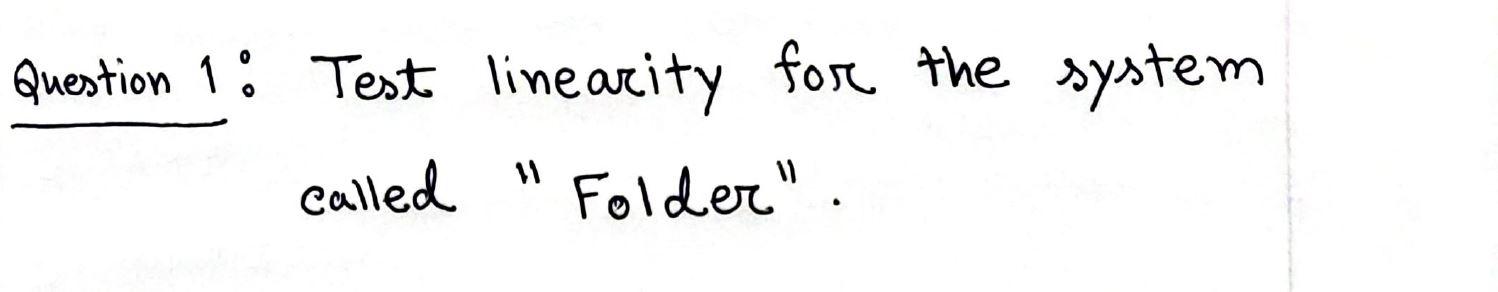 Question 1: Test linearity for the system
called "Folder".